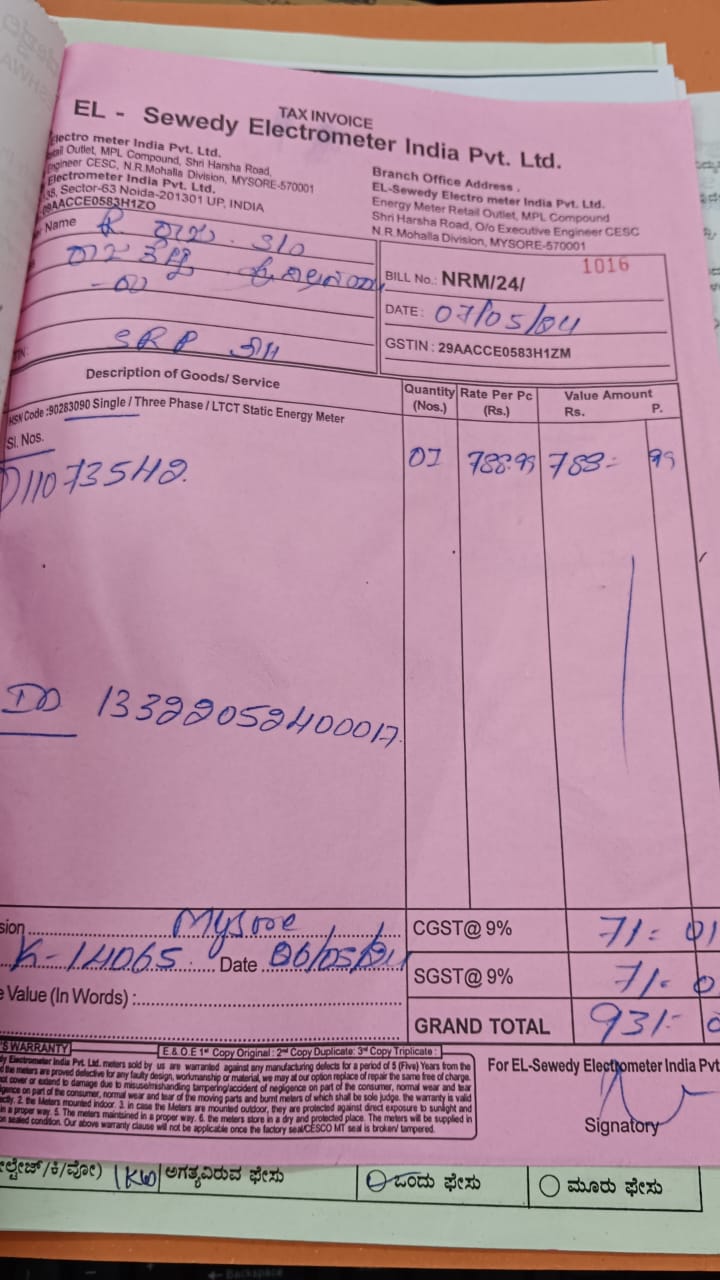 TAX INVOICE
EL - Sewedy Electrometer India Pvt. Ltd.
Electro meter India Pvt. Ltd.
Outlet, MPL Compound, Shri Harsha Road,
Engineer CESC, N.R.Mohalla Division, MYSORE-570001
Electrometer India Pvt. Ltd.
Sector-63 Noida-201301 UP, INDIA
29AACCE0583H1ZO
Branch Office Address .
EL-Sewedy Electro meter India Pvt. Ltd.
Energy Meter Retail Outlet, MPL Compound
Shri Harsha Road, O/o Executive Engineer CESC
N.R.Mohalla Division, MYSORE-570001
Name
1016
BILL No.: NRM/24/
DATE : 07/05/24
GSTIN : 29AACCE0583H1ZM
Description of Goods/ Service Quantity (Nos.) Rate Per Pc (Rs.) Value Amount Rs. P.
HSN Code :90283090 Single / Three Phase / LTCT Static Energy Meter
Sl. Nos.
11073542. 01 788.99 788= 99
DD 13322052400017
Mysore CGST@ 9% 71= 01
K-14065 Date 06/05/24 SGST@ 9% 71=
Value (In Words) : GRAND TOTAL 931=
WARRANTY
E & O.E 1st Copy Original : 2nd Copy Duplicate: 3rd Copy Triplicate :
Electrometer India Pvt. Ltd. meters sold by us are warranted against any manufacturing defects for a period of 5 (Five) Years from the
the meters are proved defective for any faulty design, workmanship or material, we may at our option replace of repair the same free of charge.
cover or extend to damage due to misuse/mishandling tampering/accident of negligence on part of the consumer, normal wear and tear
on part of the consumer, normal wear and tear of the moving parts and burnt meters of which shall be sole judge. the warranty is valid
2. the Meters mounted indoor. 3. in case the Meters are mounted outdoor, they are protected against direct exposure to sunlight and
in a proper way. 5. The meters maintained in a proper way. 6. the meters store in a dry and protected place. The meters will be supplied in
sealed condition. Our above warranty clause will not be applicable once the factory seal/CESCO MT seal is broken/ tampered.
For EL-Sewedy Electrometer India Pvt
Signatory
1KW ಅಗತ್ಯವಿರುವ ಫೇಸು ಒಂದು ಫೇಸು ಮೂರು ಫೇಸು
Backspace